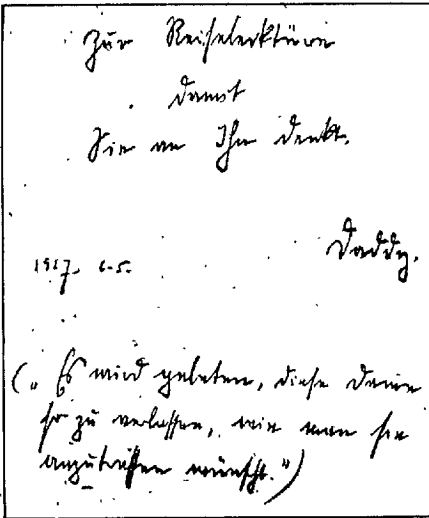 Zur Reiselektüre
damit
Sie an Ihn denkt.
Daddy.
1957. 6.5.
(„Es wird gebeten, diese Dame
so zu verlassen, wie man sie
anzutreffen wünscht.")